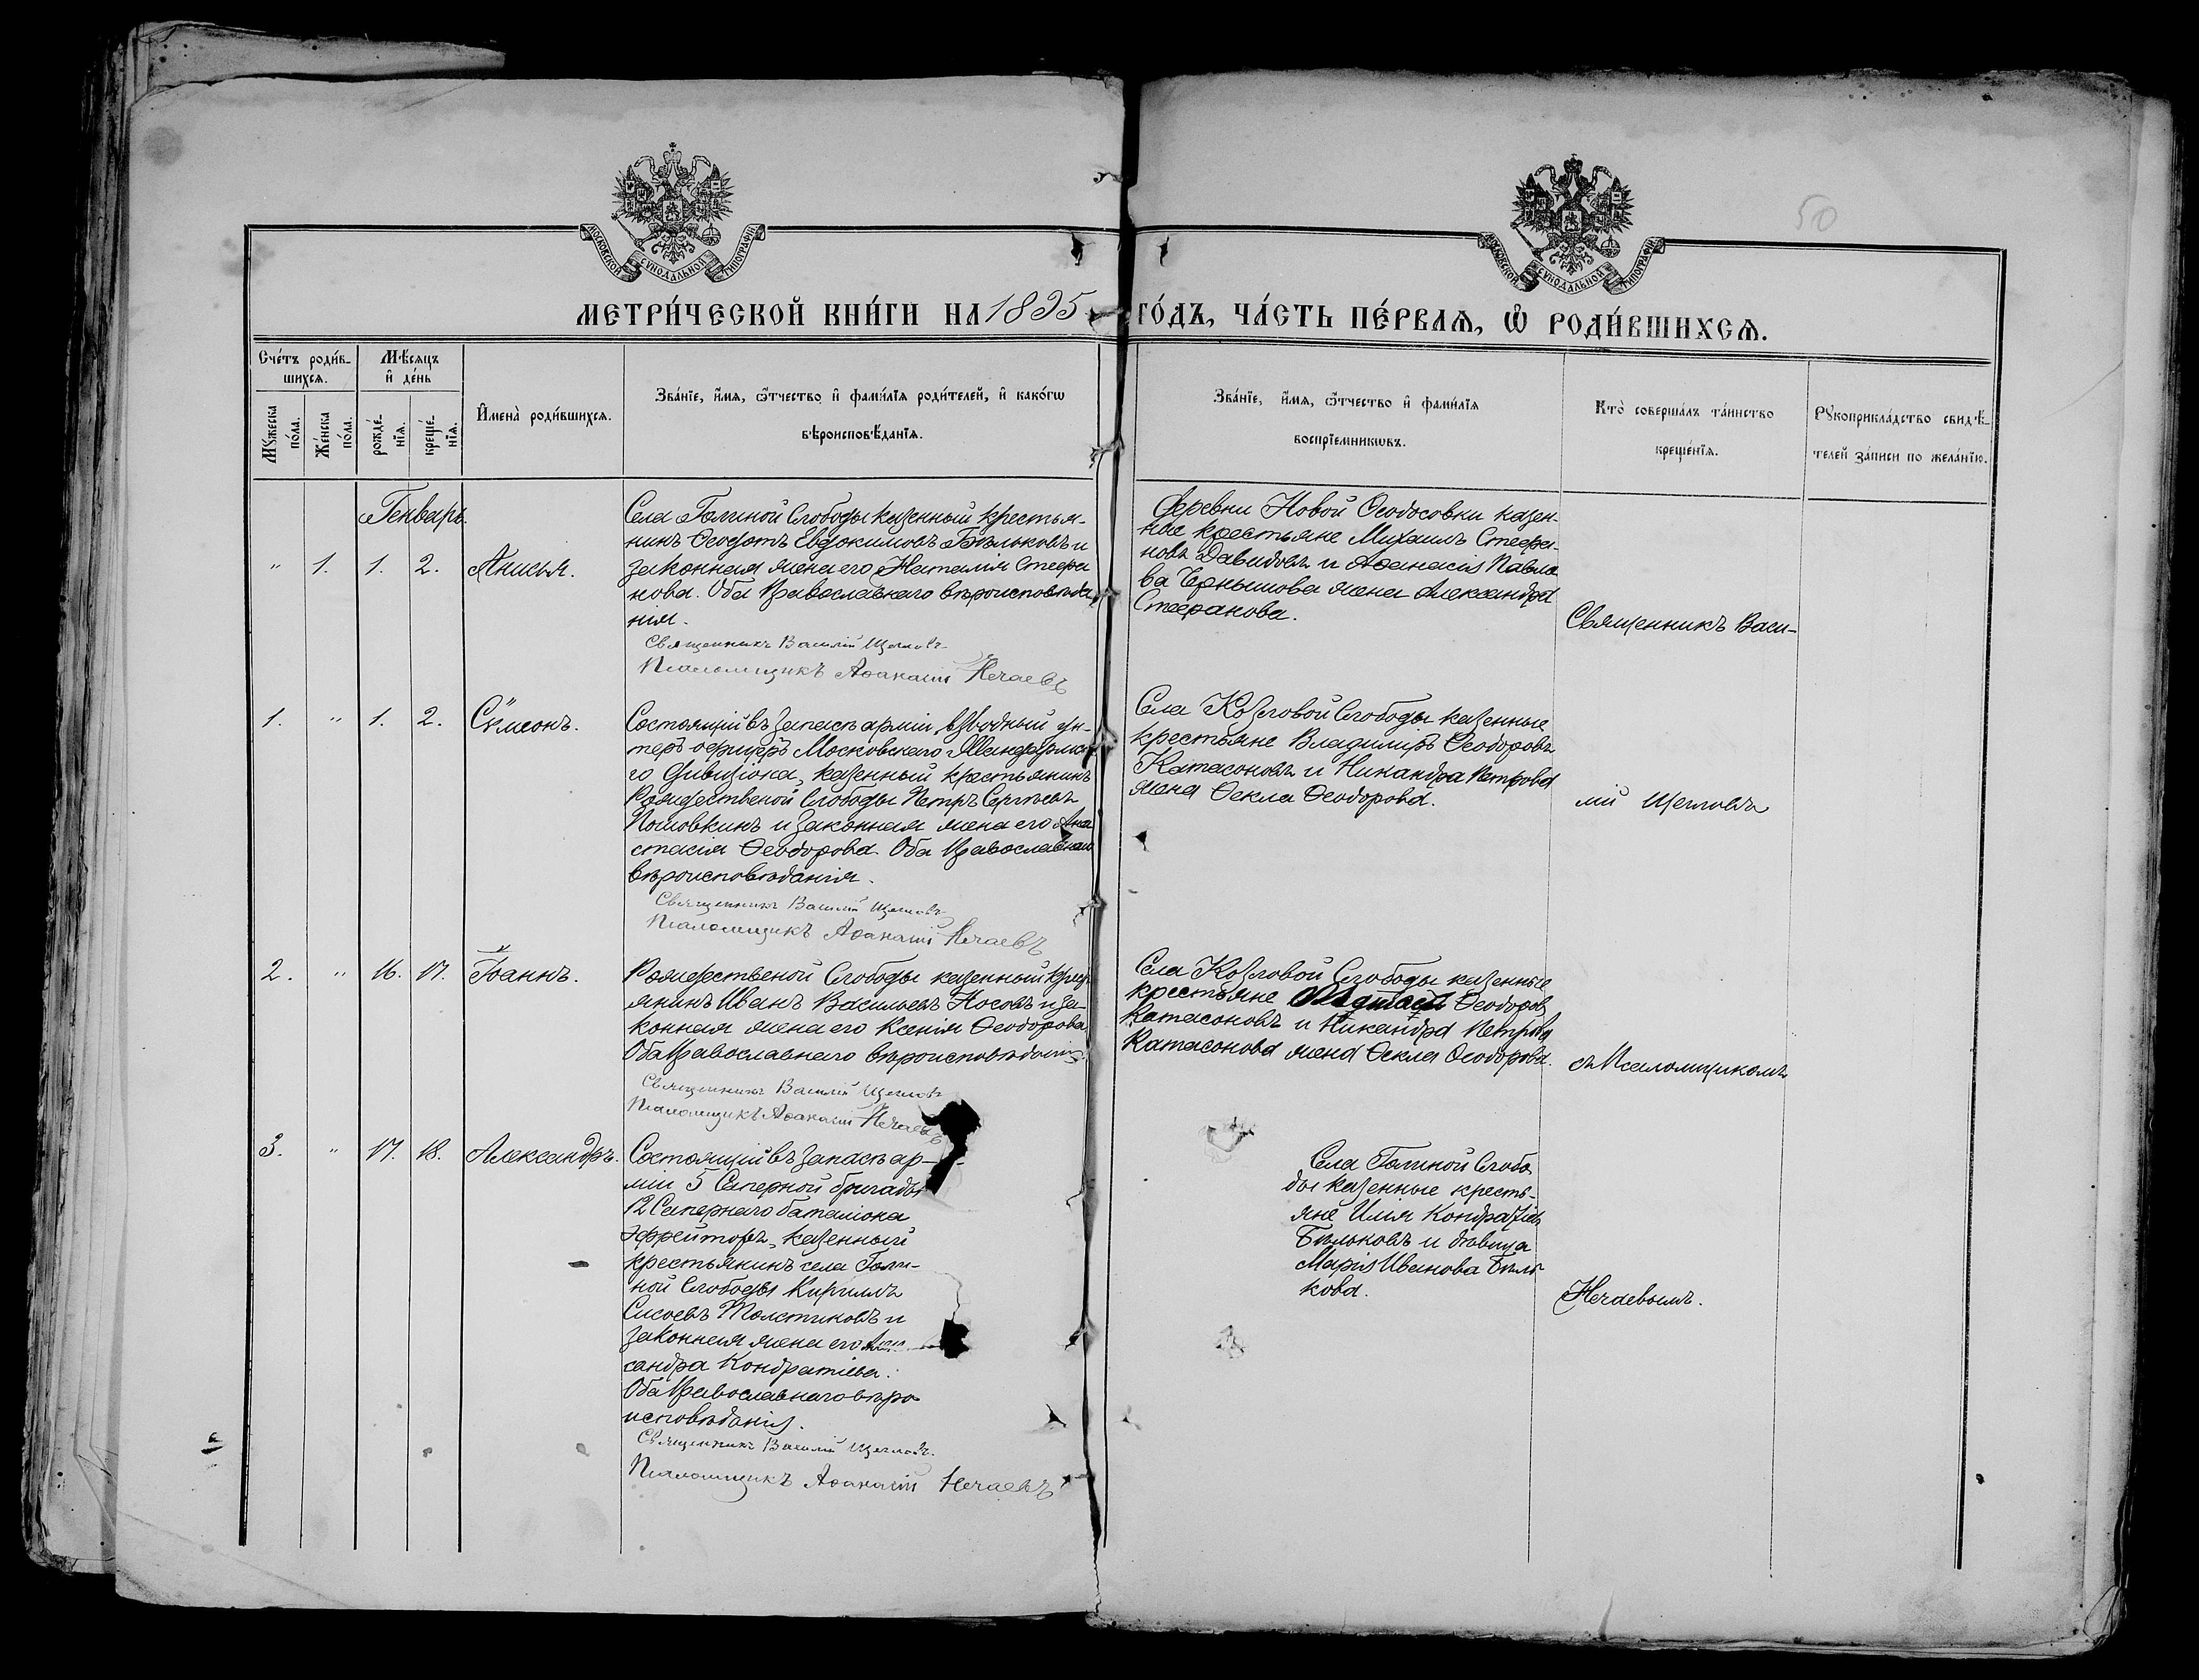 50
МОСКОВСКОЙ СѴНОДАЛЬНОЙ ТИПОГРАФІИ
МОСКОВСКОЙ СѴНОДАЛЬНОЙ ТИПОГРАФІИ
МЕТРИ́ЧЕСКОЙ КНИ́ГИ НА 1895 ГО́ДЪ, ЧА́СТЬ ПЕ́РВАѦ, Ѿ РОДИ́ВШИХСѦ.
Сче́тъ роди́в-
шихсѧ.
Мꙋ́жеска
по́ла.
Же́нска
по́ла.
Мѣ́сѧцъ
и҆ де́нь
рожде́-
нїѧ.
креще́-
нїѧ.
И҆мена̀ роди́вшихсѧ.
Зва́нїе, и҆́мѧ, ѻ҆́тчество и҆ фамилїѧ роди́телей, и҆ како́гѡ
вѣроисповѣ́данїѧ.
Зва́нїе, и҆́мѧ, ѻ҆́тчество и҆ фами́лїѧ
воспрїе́мникѡвъ.
Кто̀ соверша́лъ та́инство
креще́нїѧ.
Рꙋкоприкла́дство свидѣ́-
телей за́писи по жела́нїю.
Генварь.
" 1. 1. 2. Анисья.
Села Голиной Слободы казенный крестья-
нинъ Ѳеодотъ Евдокимовъ Бѣльковъ и
законная жена его Наталия Стефа
нова. Оба Православнаго вѣроисповѣда
нія.
Священникъ Василій Щегловъ
Псаломщикъ Аѳанасій Нечаевъ
Деревни Новой Ѳеодосовки казен-
ные крестьяне Михаилъ Стефа-
новъ Давидовъ и Аѳанасія Павло
ва Чернышова жена Александра
Стефанова.
Священникъ Васи-
1. " 1. 2. Сѵмеонъ.
Состоящій въ запасѣ арміи, взводный ун-
теръ офицеръ Московскаго Жандармска
го дивизіона, казенный крестьянинъ
Рождественой Слободы Петръ Сергѣевъ
Половкинъ и законная жена его Ана
стасія Ѳеодорова. Оба Православнаго
вѣроисповѣданія.
Священникъ Василій Щегловъ
Псаломщикъ Аѳанасій Нечаевъ
Села Козловой Слободы казенные
крестьяне Владиміръ Ѳеодоровъ
Катасоновъ и Никандра Петрова
жена Ѳекла Ѳеодорова.
лій Щегловъ
2. " 16. 17. Іоаннъ.
Рождественой Слободы казенный крест
янинъ Иванъ Васильевъ Носовъ и за-
конная жена его Ксенія Ѳеодорова
Оба Православнаго вѣроисповѣданія.
Священникъ Василій Щегловъ
Псаломщикъ Аѳанасій Нечаевъ
Села Козловой Слободы казенные
крестьяне Ѳеодоровъ
Катасоновъ и Никандра Петрова
Катасонова жена Ѳекла Ѳеодорова.
съ Псаломщикомъ
3. " 17. 18. Александръ.
Состоящій въ запасѣ ар-
міи 5 Саперной бригады
12 Сапернаго баталіона
Эфрейторъ, казенный
крестьянинъ села Голи-
ной Слободы Кириллъ
Сисоевъ Толстиковъ и
законная жена его
сандра Кондратіева.
Оба Православнаго вѣро
исповѣданія.
Священникъ Василій Щегловъ.
Псаломщикъ Аѳанасій Нечаевъ
Села Голиной Слобо
ды казенные кресть-
яне Илья Кондратіевъ
Бѣльковъ и дѣвица
Марія Иванова Бѣль
кова.
Нечаевымъ.